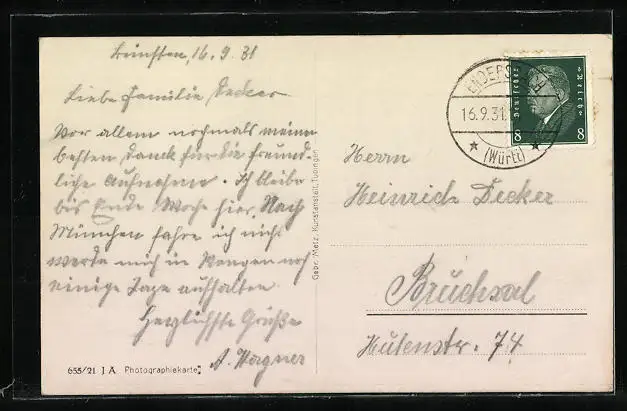 16.9.31
Liebe Familie Decker
Vor allem nochmals meinen
besten Dank für die freund-
liche Aufnahme. Ich bleibe
bis Ende Woche hier. Nach
München fahre ich nicht
werde mich in noch
einige Tage aufhalten
Herzlichste Grüße
A. Wagner
655/21 J A Photographiekarte
Gebr. Metz, Kunstanstalt, Tübingen
16.9.31
(Württ)
Deutsches Reich
8 8
Herrn
Heinrich Decker
Bruchsal
Huttenstr. 74